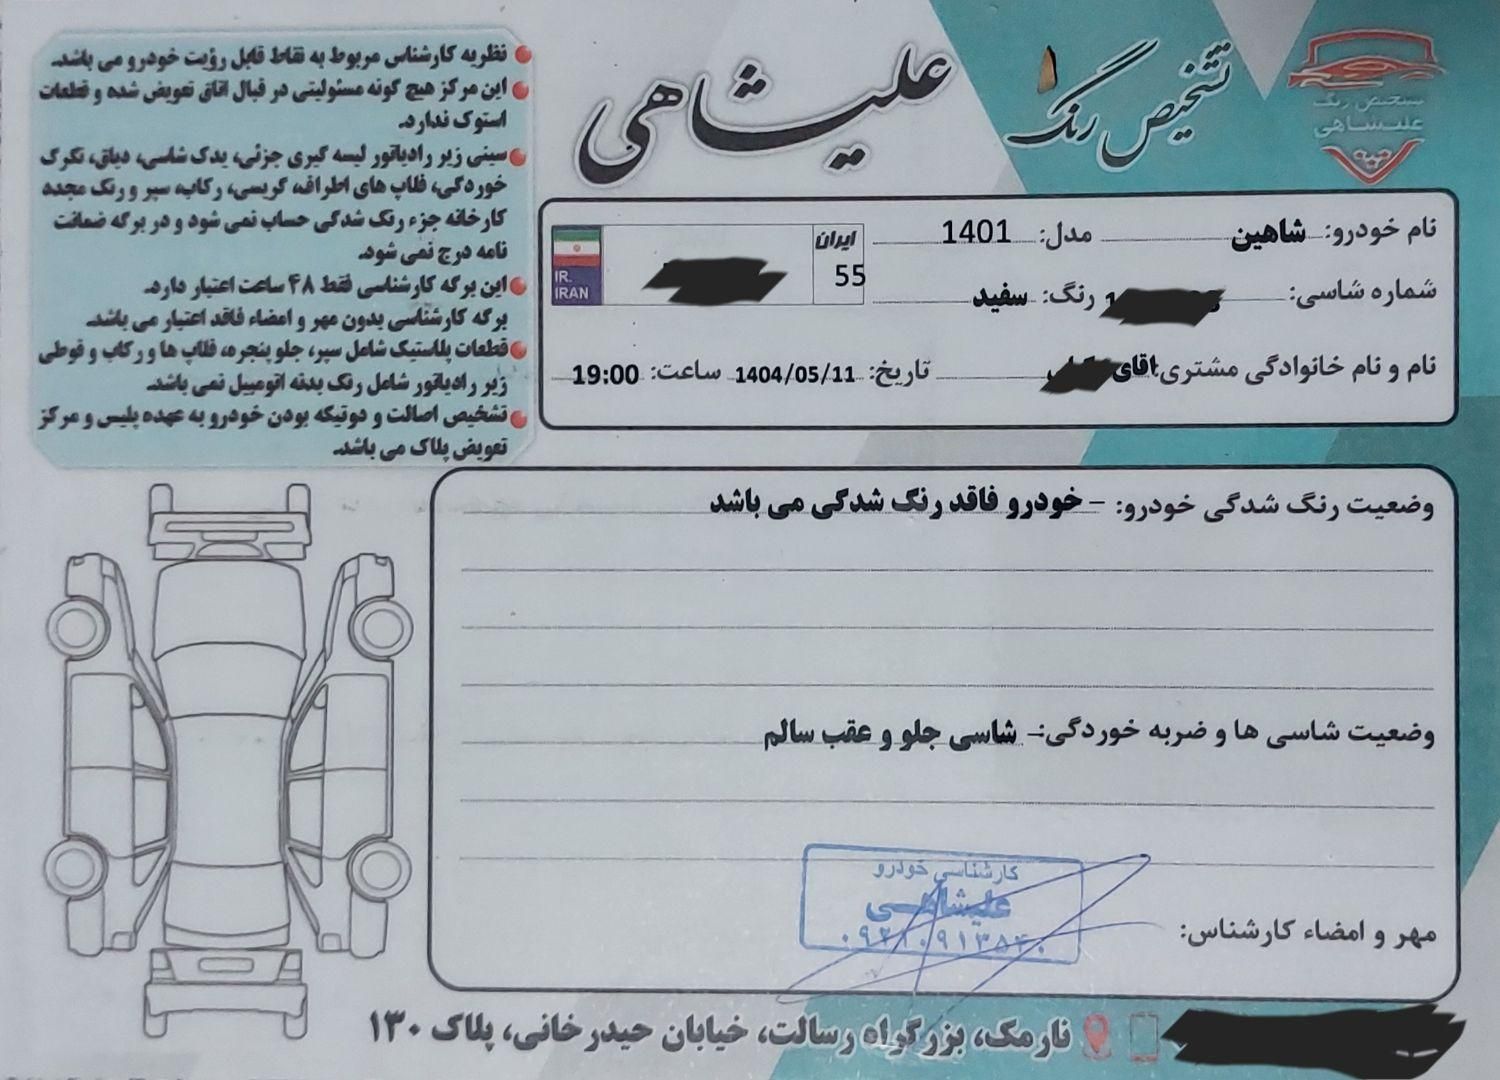 تشخیص رنگ
علیشاهی
تشخیص رنگ
علیشاهی
نام خودرو: شاهین مدل: 1401
ایران
55
IR.
IRAN
شماره شاسی: رنگ: سفید
نام و نام خانوادگی مشتری: اقای تاریخ: 1404/05/11 ساعت: 19:00
نظریه کارشناس مربوط به نقاط قابل رؤیت خودرو می باشد.
این مرکز هیچ گونه مسئولیتی در قبال اتاق تعویض شده و قطعات
استوک ندارد.
سینی زیر رادیاتور لیسه گیری جزئی، یدک شاسی، دیاق، تگرگ
خوردگی، فلاپ های اطراف، گریسی، رکاب، سپر و رنگ مجدد
کارخانه جزء رنگ شدگی حساب نمی شود و در برگه ضمانت
نامه درج نمی شود.
این برگه کارشناسی فقط ۴۸ ساعت اعتبار دارد.
برگه کارشناسی بدون مهر و امضاء فاقد اعتبار می باشد.
قطعات پلاستیک شامل سپر، جلو پنجره، فلاپ ها و رکاب و قوطی
زیر رادیاتور شامل رنگ بدنه اتومبیل نمی باشد.
تشخیص اصالت و دوتیکه بودن خودرو به عهده پلیس و مرکز
تعویض پلاک می باشد.
وضعیت رنگ شدگی خودرو: – خودرو فاقد رنگ شدگی می باشد
وضعیت شاسی ها و ضربه خوردگی:– شاسی جلو و عقب سالم
کارشناسی خودرو
علیشاهی
مهر و امضاء کارشناس:
نارمک، بزرگراه رسالت، خیابان حیدرخانی، پلاک ۱۳۰